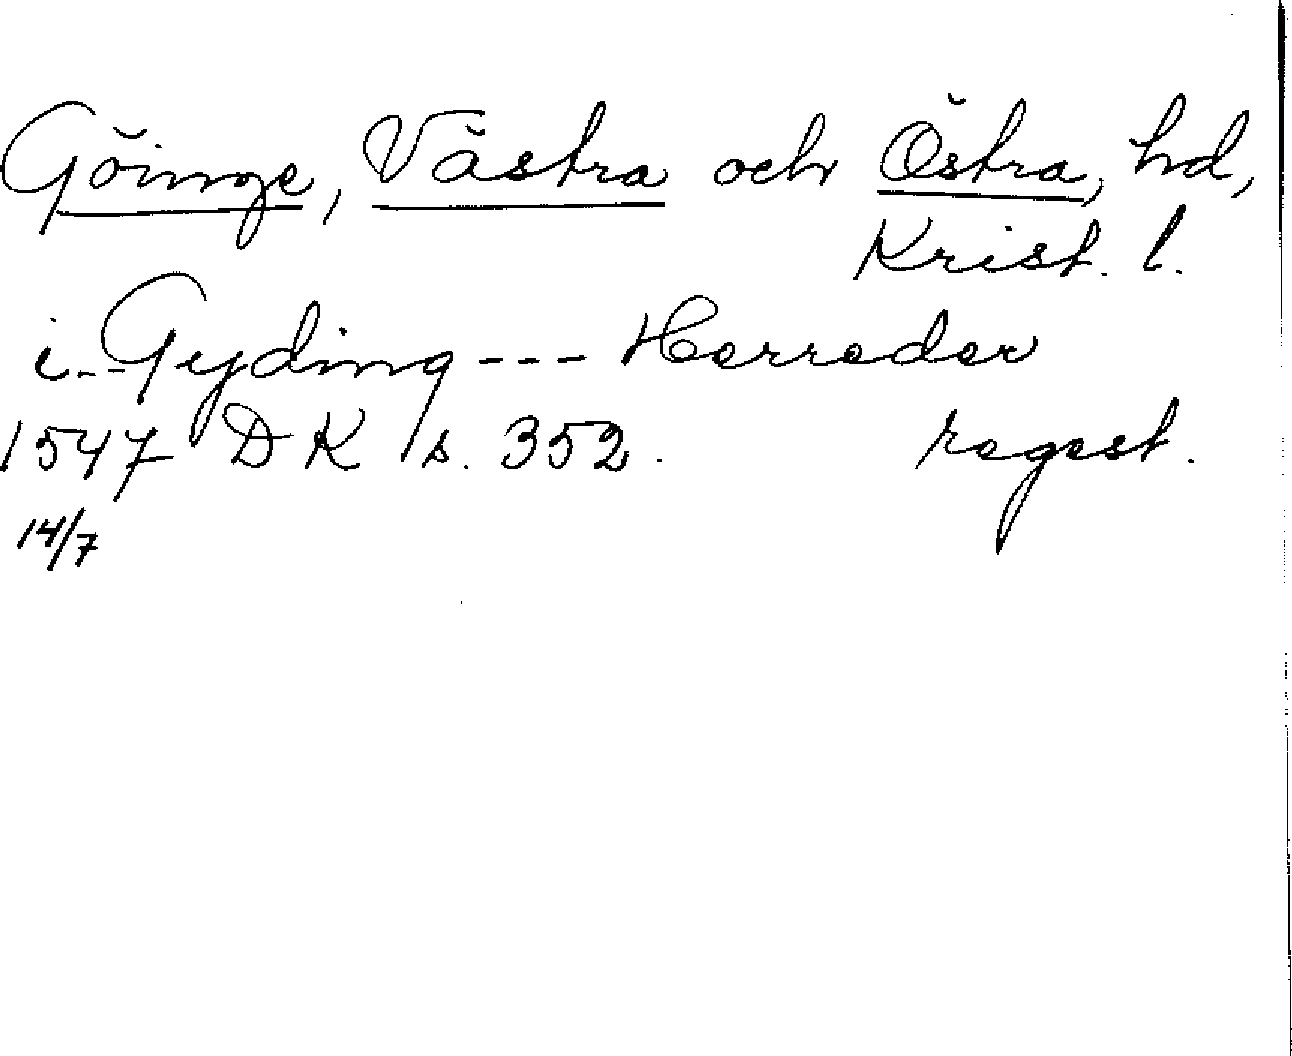 Göinge, Västra och Östra, hd,
Krist. l.
i -- Gyding --- Herreder
1547 DK s. 352. regest.
14/7